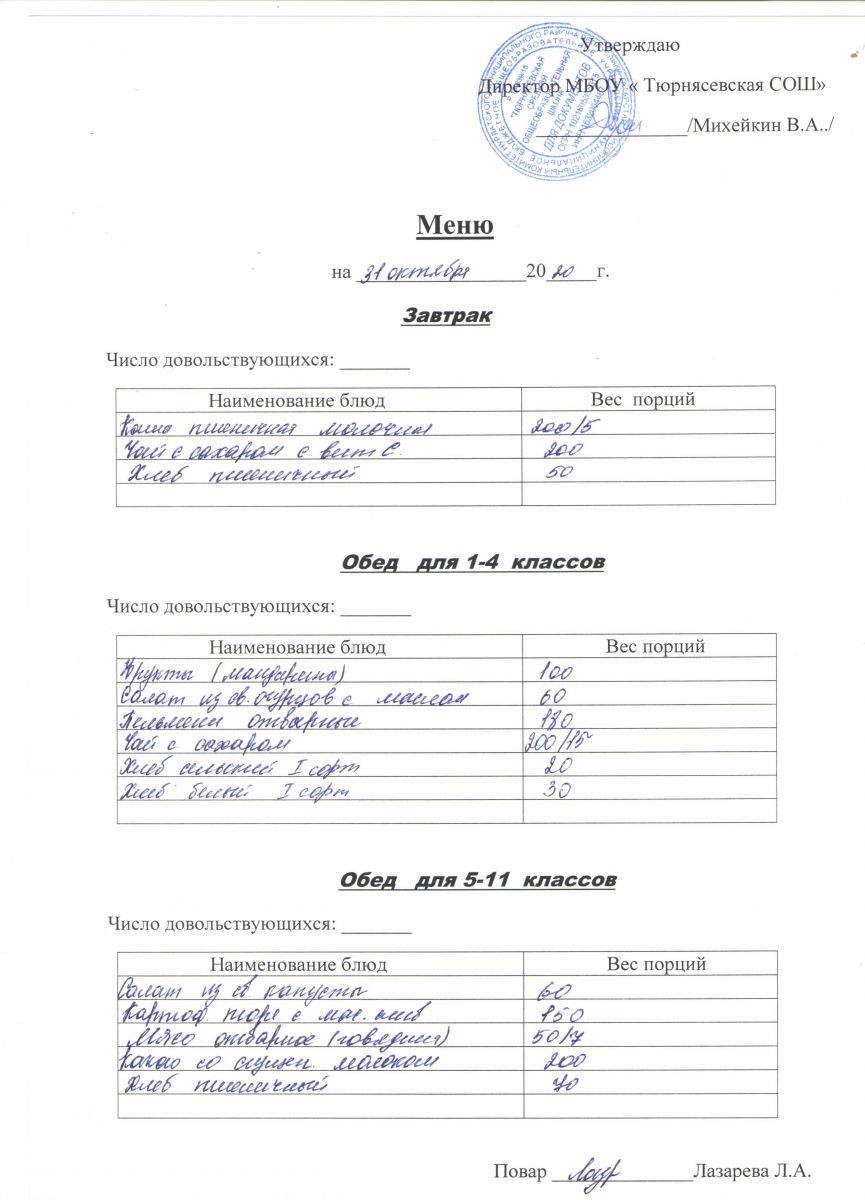 Утверждаю
Директор МБОУ « Тюрнясевская СОШ»
/Михейкин В.А../
Меню
на 31 октября 2020 г.
Завтрак
Число довольствующихся:
Наименование блюд Вес порций
Каша пшеничная молочная 200/5
Чай с сахаром с вит С. 200
Хлеб пшеничный 50
Обед для 1-4 классов
Число довольствующихся:
Наименование блюд Вес порций
Фрукты (мандарины) 100
Салат из св. огурцов с маслом 60
Пельмени отварные 180
Чай с сахаром 200/15
Хлеб сельский I сорт 20
Хлеб белый I сорт 30
Обед для 5-11 классов
Число довольствующихся:
Наименование блюд Вес порций
Салат из св. капусты 60
Картоф пюре с мас. слив 150
Мясо отварное (говядина) 50/7
Какао со сгущен. молоком 200
Хлеб пшеничный 70
Повар Лазарева Л.А.